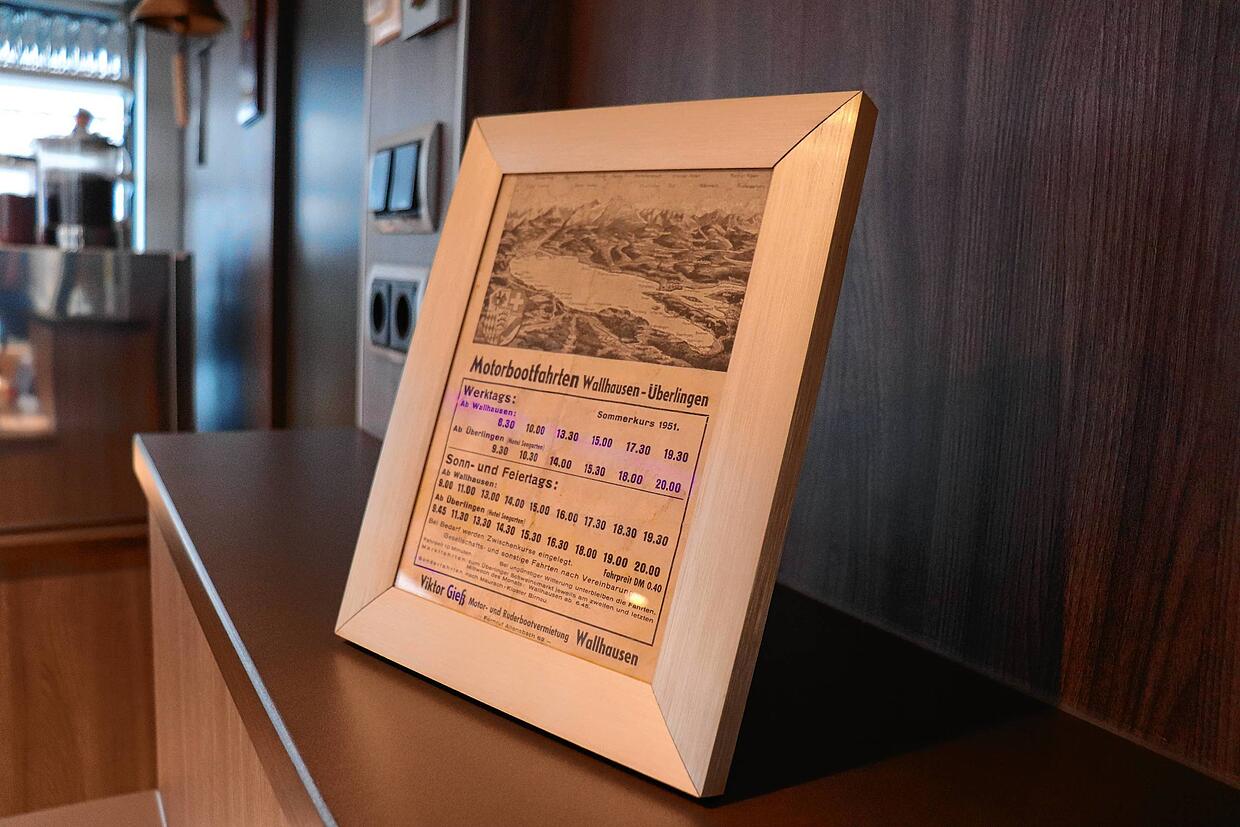 Motorbootfahrten Wallhausen - Überlingen
Werktags:
Sommerkurs 1951.
Ab Wallhausen:
8.30 10.00 13.30 15.00 17.30 19.30
Ab Überlingen (Hotel Seegarten)
9.30 10.30 14.00 15.30 18.00 20.00
Sonn- und Feiertags:
Ab Wallhausen:
9.00 11.00 13.00 14.00 15.00 16.00 17.30 18.30 19.30
Ab Überlingen (Hotel Seegarten)
9.45 11.30 13.30 14.30 15.30 16.30 18.00 19.00 20.00
Bei Bedarf werden Zwischenkurse eingelegt.
Gesellschafts- und sonstige Fahrten nach Vereinbarung.
Fahrzeit 10 Minuten. Fahrpreis DM 0.40
Bei ungünstiger Witterung unterbleiben die Fahrten.
Marktfahrten zum Überlinger Schweinemarkt jeweils am zweiten und letzten
Mittwoch des Monats. Wallhausen ab 6.45.
Sonderfahrten nach Maurach-Kloster Birnau.
Viktor Gieß Motor- und Ruderbootvermietung Wallhausen
Fernruf Allensbach